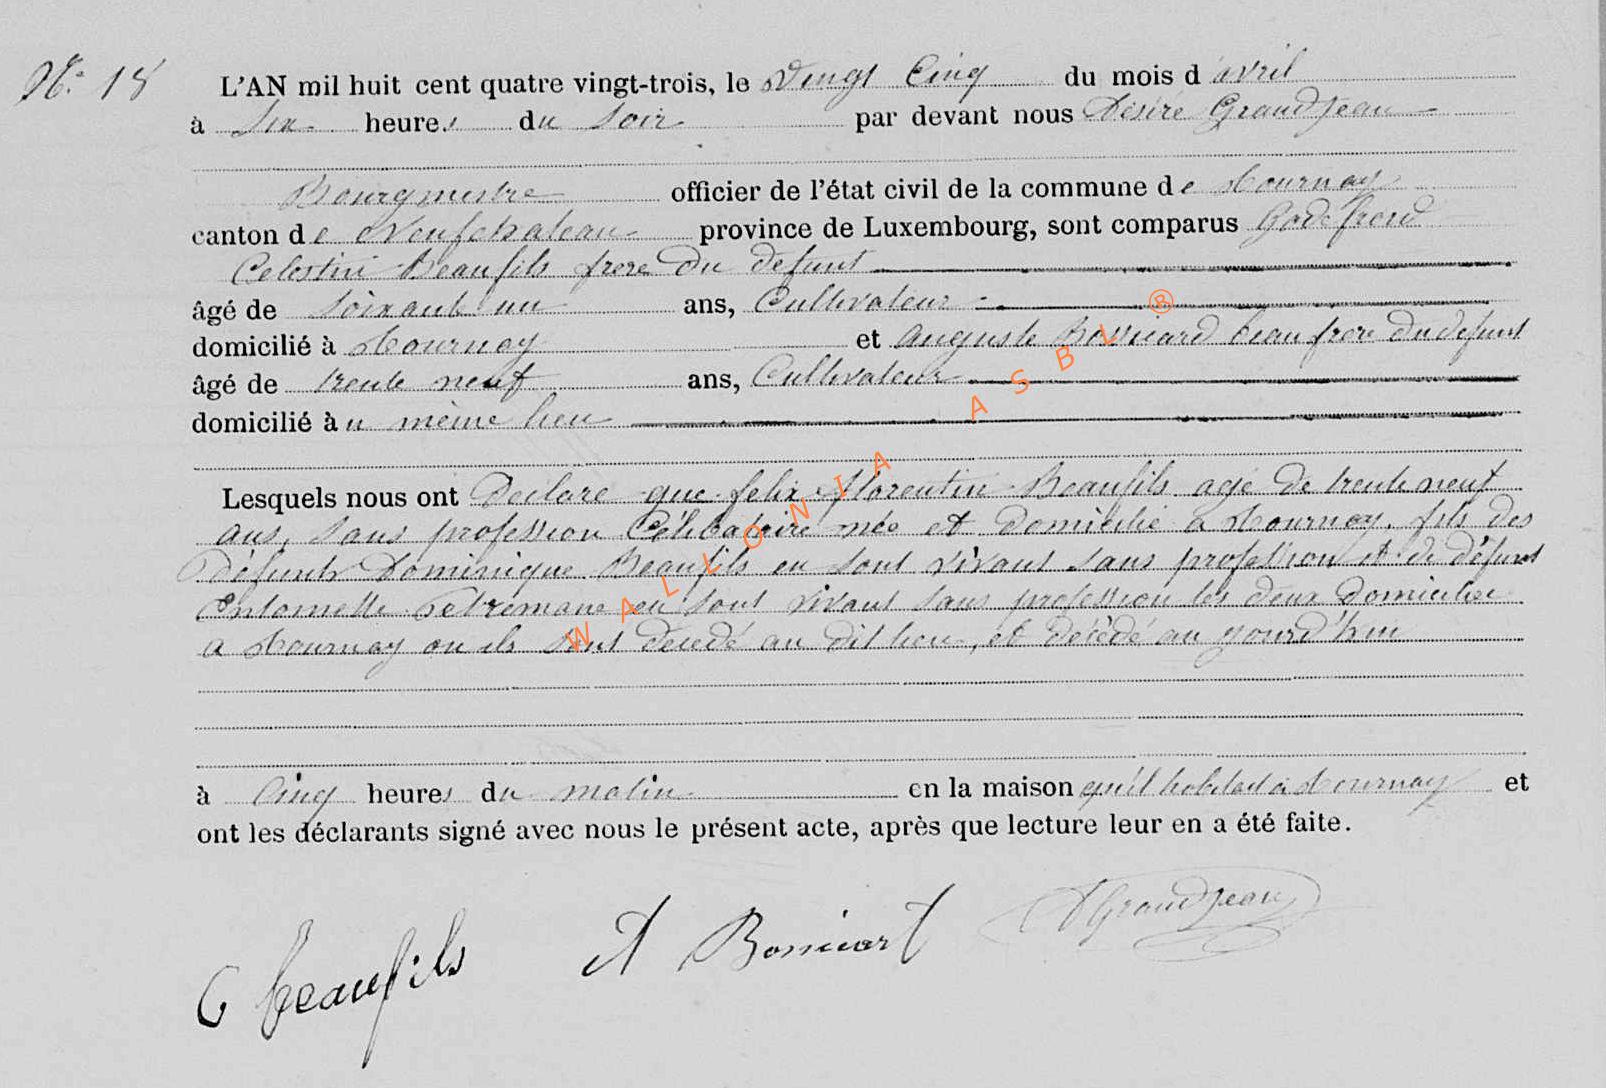 N° 18
L'AN mil huit cent quatre vingt-trois, le vingt Cinq du mois d'avril
à Six heures du Soir par devant nous Désiré Grandjean
Bourgmestre officier de l'état civil de la commune de Tournay
canton de Neufchateau province de Luxembourg, sont comparus Godefroid
Celestin Beaufils frere du defunt
âgé de Soixante un ans, Cultivateur
domicilié à Tournay et Auguste beau frere du defunt
âgé de trente neuf ans, Cultivateur
domicilié au même lieu
Lesquels nous ont Declaré que felix florentin Beaufils agé de trente neuf
ans, sans profession Célibataire née et domicilié a Tournay, fils des
défunts Dominique Beaufils en sont vivant sans profession et de défunt
en sont vivant sans profession les deux domicilié
a Tournay ou ils sont décedé au dit lieu, et décédé au yourd'hui
à Cinq heures du matin en la maison qu'il habitait à Tournay et
ont les déclarants signé avec nous le présent acte, après que lecture leur en a été faite.
C beaufils A DGrandjean
WALLONIA ASBL ®